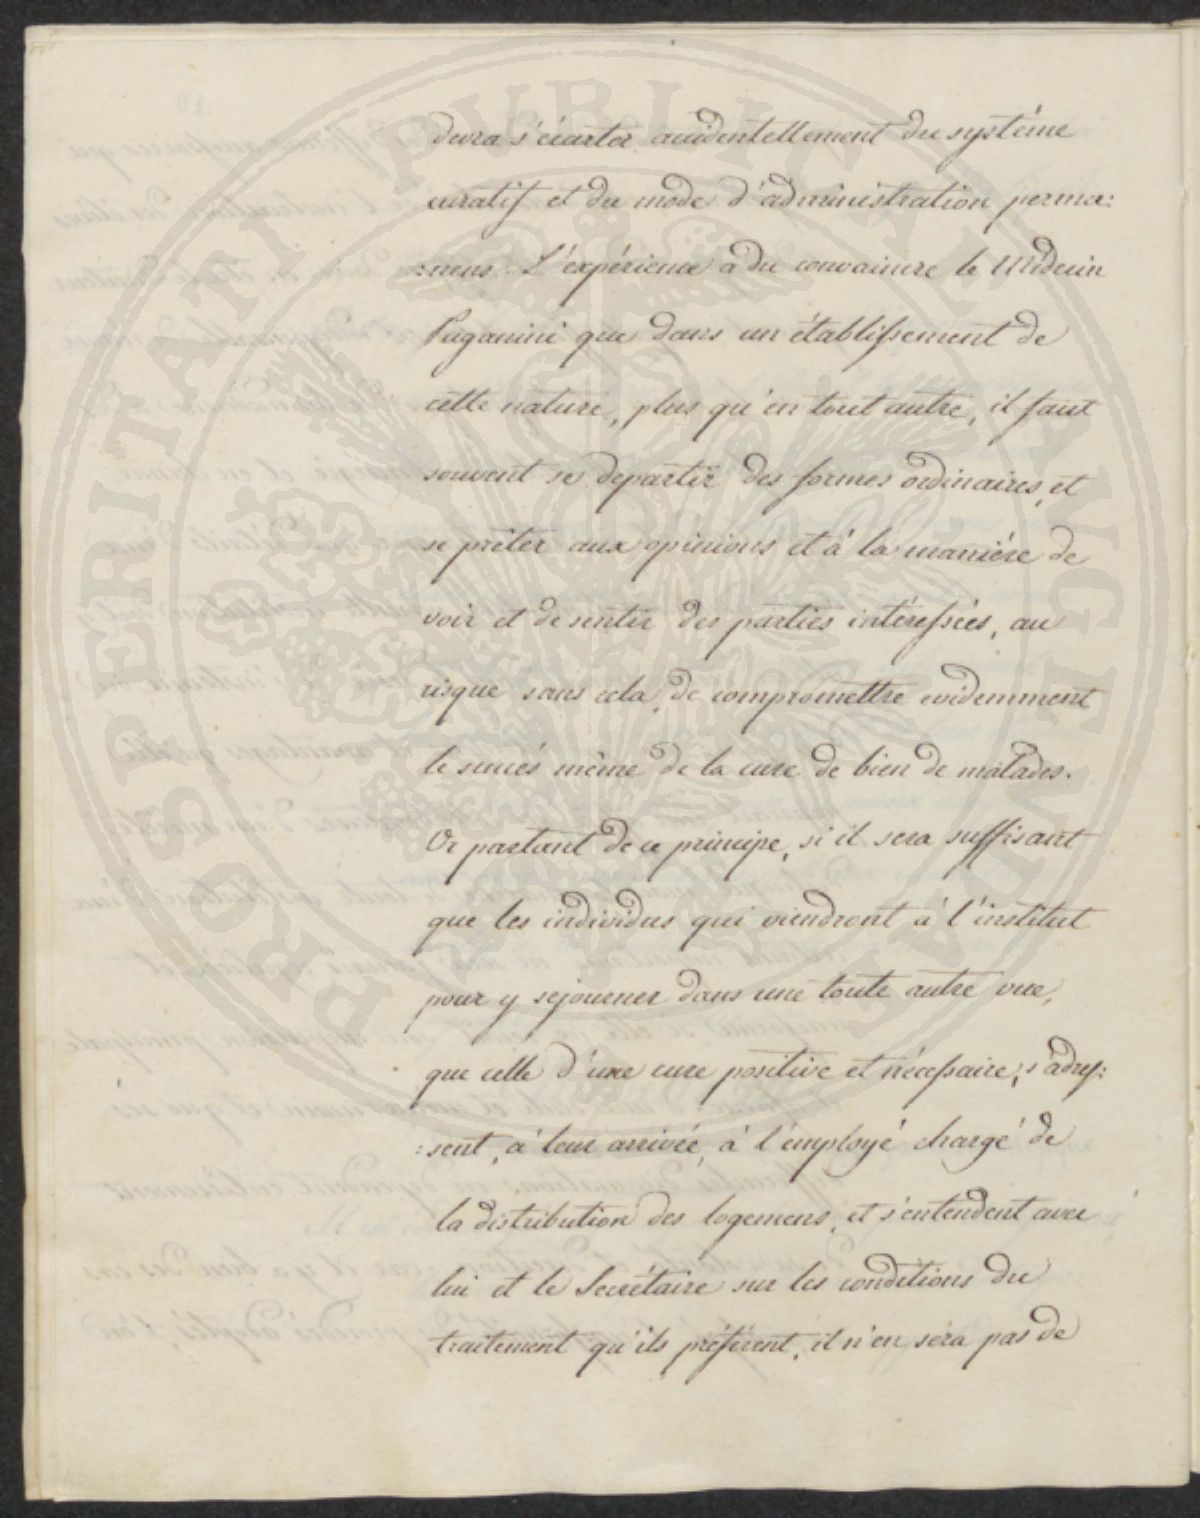 devra s'écarter accidentellement du système
curatif et du mode d'administration perma:
:nens. L'expérience a du convaincre le Médecin
Paganini que dans un établissement de
cette nature, plus qu'en tout autre, il faut
souvent se departir des formes ordinaires, et
se prêter aux opinions et à la manière de
voir et de sentir des parties intéressées, au
risque sans cela, de compromettre evidemment
le succés même de la cure de bien de malades.
Or partant de ce principe, si il sera suffisant
que les individus qui viendront à l'institut
pour y sejourner dans une toute autre vue,
que celle d'une cure positive et nécessaire, s'adres:
:sent, à leur arrivée, à l'employé chargé de
la distribution des logemens, et s'entendent avec
lui et le Secrétaire sur les conditions du
traitement qu'ils préférent, il n'en sera pas de
PROSPERITATI PUBLICAE VINCE